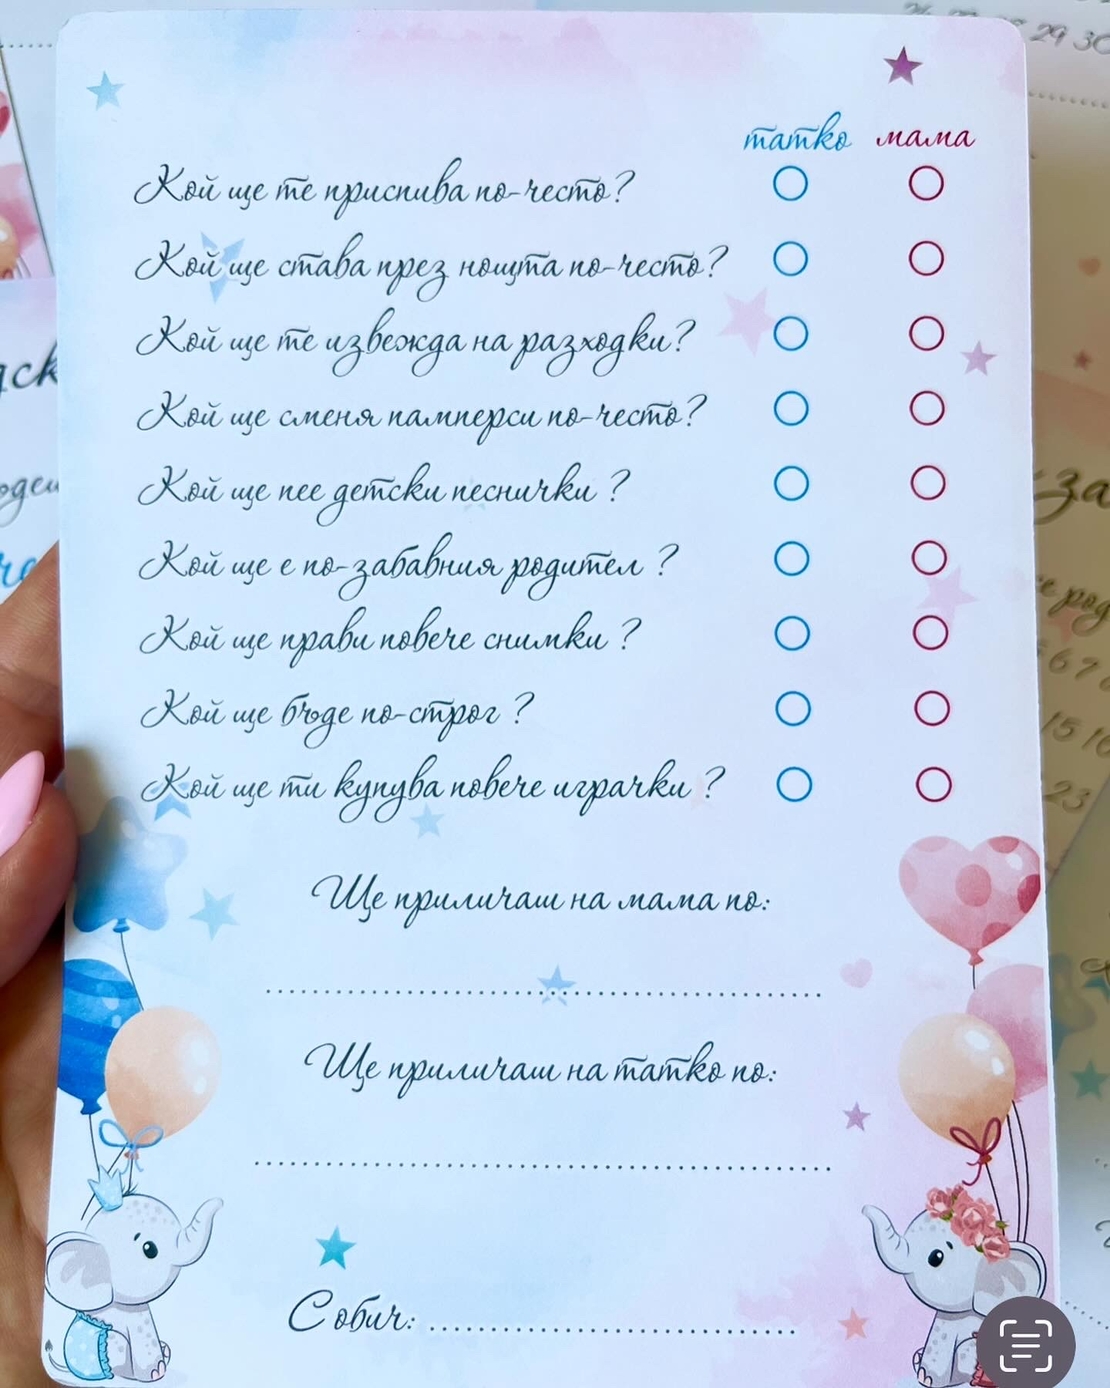 татко мама
Кой ще те приспива по-често?
Кой ще става през нощта по-често?
Кой ще те извежда на разходки?
Кой ще сменя памперси по-често?
Кой ще пее детски песнички ?
Кой ще е по-забавния родител ?
Кой ще прави повече снимки ?
Кой ще бъде по-строг ?
Кой ще ти купува повече играчки ?
Ще приличаш на мама по:
Ще приличаш на татко по:
С обич:
29 30
за
5 6 7
15 16
23